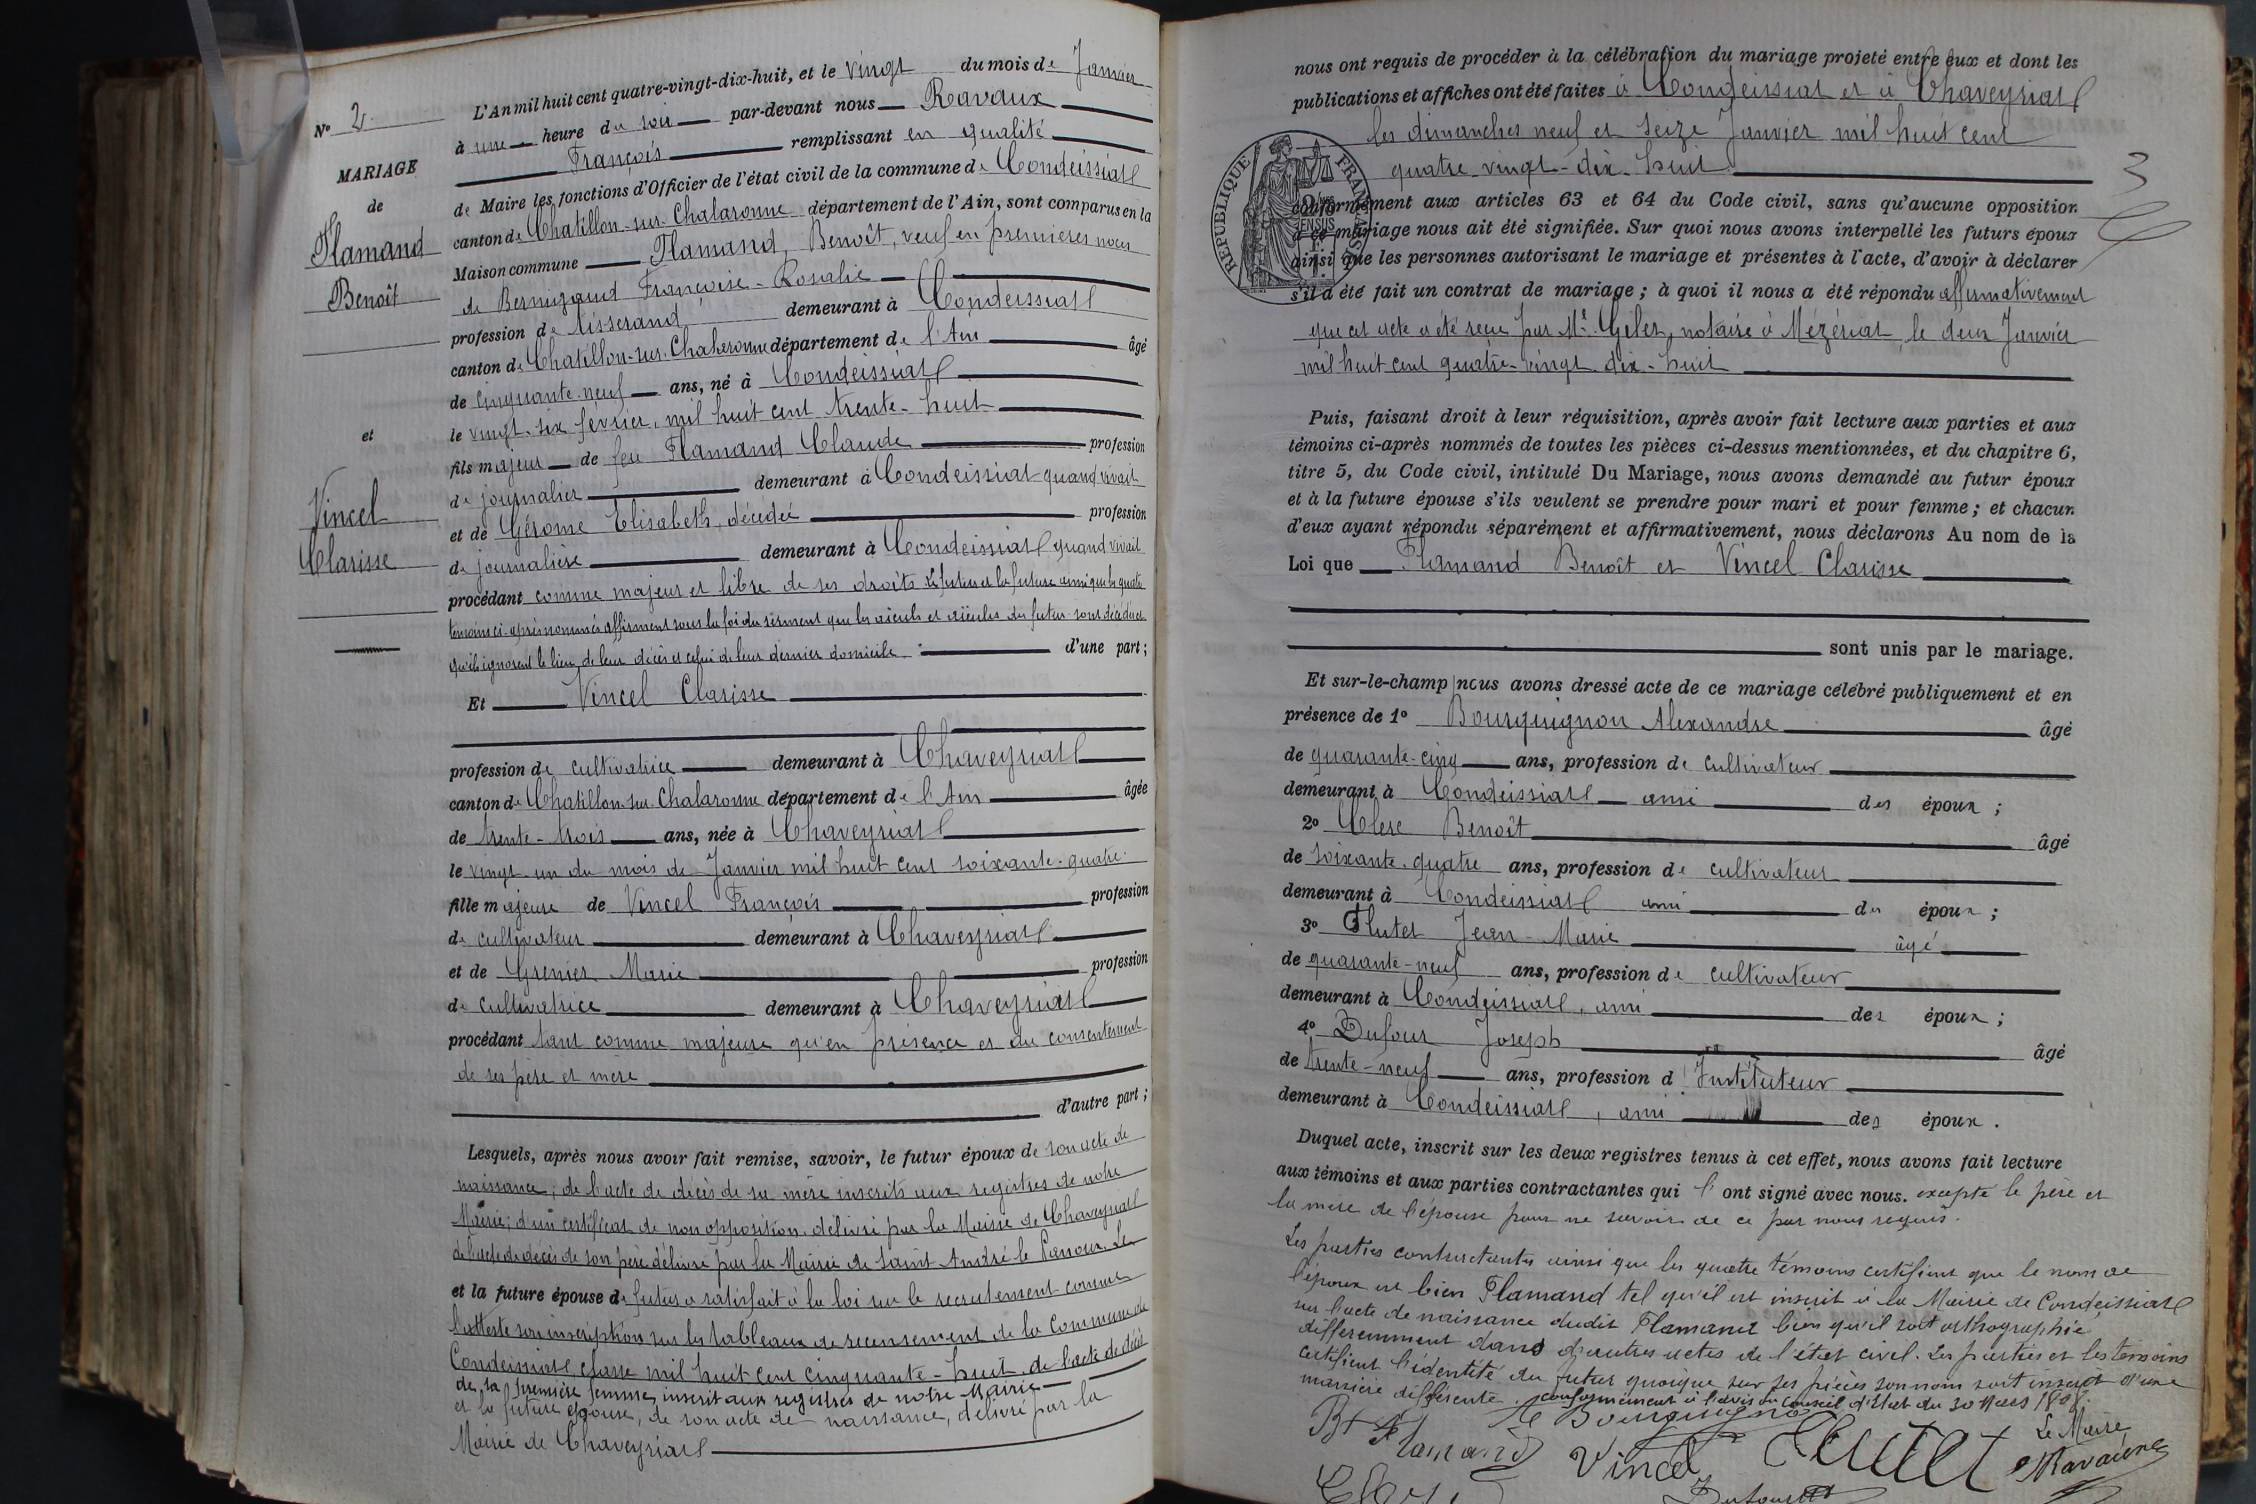 N° 2
MARIAGE
de
Flamand
Benoît
et
Vincel
Clarisse
L'An mil huit cent quatre-vingt-dix-huit, et le vingt du mois de Janvier
à une heure du soir par-devant nous Ravaux
François remplissant en qualité
de Maire les fonctions d'Officier de l'état civil de la commune de Condeissiat
canton de Chatillon-sur-Chalaronne département de l'Ain, sont comparus en la
Maison commune Flamand, Benoît, veuf en premières noces
de Bernigaud Françoise-Rosalie
profession de tisserand demeurant à Condeissiat
canton de Chatillon-sur-Chalaronne département de l'Ain âgé
de cinquante-neuf ans, né à Condeissiat
le vingt-six février, mil huit cent trente-huit
fils majeur de feu Flamand Claude profession
de journalier demeurant à Condeissiat quand vivait
et de Gérome Elisabeth, décédée profession
de journalière demeurant à Condeissiat quand vivait
procédant comme majeur et libre de ses droits Le futur et la future ainsi que les quatre
témoins ci-après nommés affirment sous la foi du serment que les aïeuls et aïeules du futur sont décédés et
qu'ils ignorent le lieu de leur décès et celui de leur dernier domicile d'une part;
Et Vincel Clarisse
profession de cultivatrice demeurant à Chaveyriat
canton de Chatillon-sur-Chalaronne département de l'Ain âgée
de trente-trois ans, née à Chaveyriat
le vingt-un du mois de Janvier mil huit cent soixante-quatre
fille majeure de Vincel François profession
de cultivateur demeurant à Chaveyriat
et de Grenier Marie profession
de cultivatrice demeurant à Chaveyriat
procédant tant comme majeure qu'en présence et du consentement
de ses père et mère
d'autre part;
Lesquels, après nous avoir fait remise, savoir, le futur époux de son acte de
naissance; de l'acte de décès de sa mère inscrits aux registres de notre
Mairie; d'un certificat de non opposition délivré par la Mairie de Chaveyriat
de l'acte de décès de son père délivré par la Mairie de Saint André le Panoux. Le
et la future épouse de futur a satisfait à la loi sur le recrutement comme
l'atteste son inscription sur les tableaux de recensement de la Commune de
Condeissiat classe mil huit cent cinquante-huit, de l'acte de décès
de sa première femme, inscrit aux registres de notre Mairie
et la future épouse, de son acte de naissance, délivré par la
Mairie de Chaveyriat
nous ont requis de procéder à la célébration du mariage projeté entre eux et dont les
publications et affiches ont été faites à Condeissiat et à Chaveyriat
les dimanches neuf et seize Janvier mil huit cent
quatre vingt-dix-huit
3
RÉPUBLIQUE FRANÇAISE
conformément aux articles 63 et 64 du Code civil, sans qu'aucune opposition
à ce mariage nous ait été signifiée. Sur quoi nous avons interpellé les futurs époux
ainsi que les personnes autorisant le mariage et présentes à l'acte, d'avoir à déclarer
s'il a été fait un contrat de mariage; à quoi il nous a été répondu affirmativement
que cet acte a été reçu par Me Gelet, notaire à Mézériat, le deux Janvier
mil huit cent quatre-vingt dix-huit
Puis, faisant droit à leur réquisition, après avoir fait lecture aux parties et aux
témoins ci-après nommés de toutes les pièces ci-dessus mentionnées, et du chapitre 6,
titre 5, du Code civil, intitulé Du Mariage, nous avons demandé au futur époux
et à la future épouse s'ils veulent se prendre pour mari et pour femme; et chacun
d'eux ayant répondu séparément et affirmativement, nous déclarons Au nom de la
Loi que Flamand Benoît et Vincel Clarisse
sont unis par le mariage.
Et sur-le-champ nous avons dressé acte de ce mariage célébré publiquement et en
présence de 1° Bourguignon Alexandre âgé
de quarante-cinq ans, profession de cultivateur
demeurant à Condeissiat ami des époux;
2° Clerc Benoît âgé
de soixante-quatre ans, profession de cultivateur
demeurant à Condeissiat ami des époux;
3° Flutet Jean-Marie âgé
de quarante-neuf ans, profession de cultivateur
demeurant à Condeissiat, ami des époux;
4° Dufour Joseph âgé
de trente-neuf ans, profession d'Instituteur
demeurant à Condeissiat, ami des époux.
Duquel acte, inscrit sur les deux registres tenus à cet effet, nous avons fait lecture
aux témoins et aux parties contractantes qui l'ont signé avec nous. excepté le père et
la mère de l'épouse pour ne savoir de ce par nous requis.
Les parties contractantes ainsi que les quatre témoins certifient que le nom de
l'époux est bien Flamand tel qu'il est inscrit à la Mairie de Condeissiat
sur l'acte de naissance dudit Flamand bien qu'il soit orthographié
différemment dans d'autres actes de l'état civil. Les parties et les témoins
certifient l'identité du futur quoique sur ses pièces son nom soit inscrit d'une
manière différente, conformément à l'avis du Conseil d'Etat du 30 Mars 1808.
Bt Flamand A Bourguignon Le Maire
Vincel Flutet Ravaux
Clerc Dufour